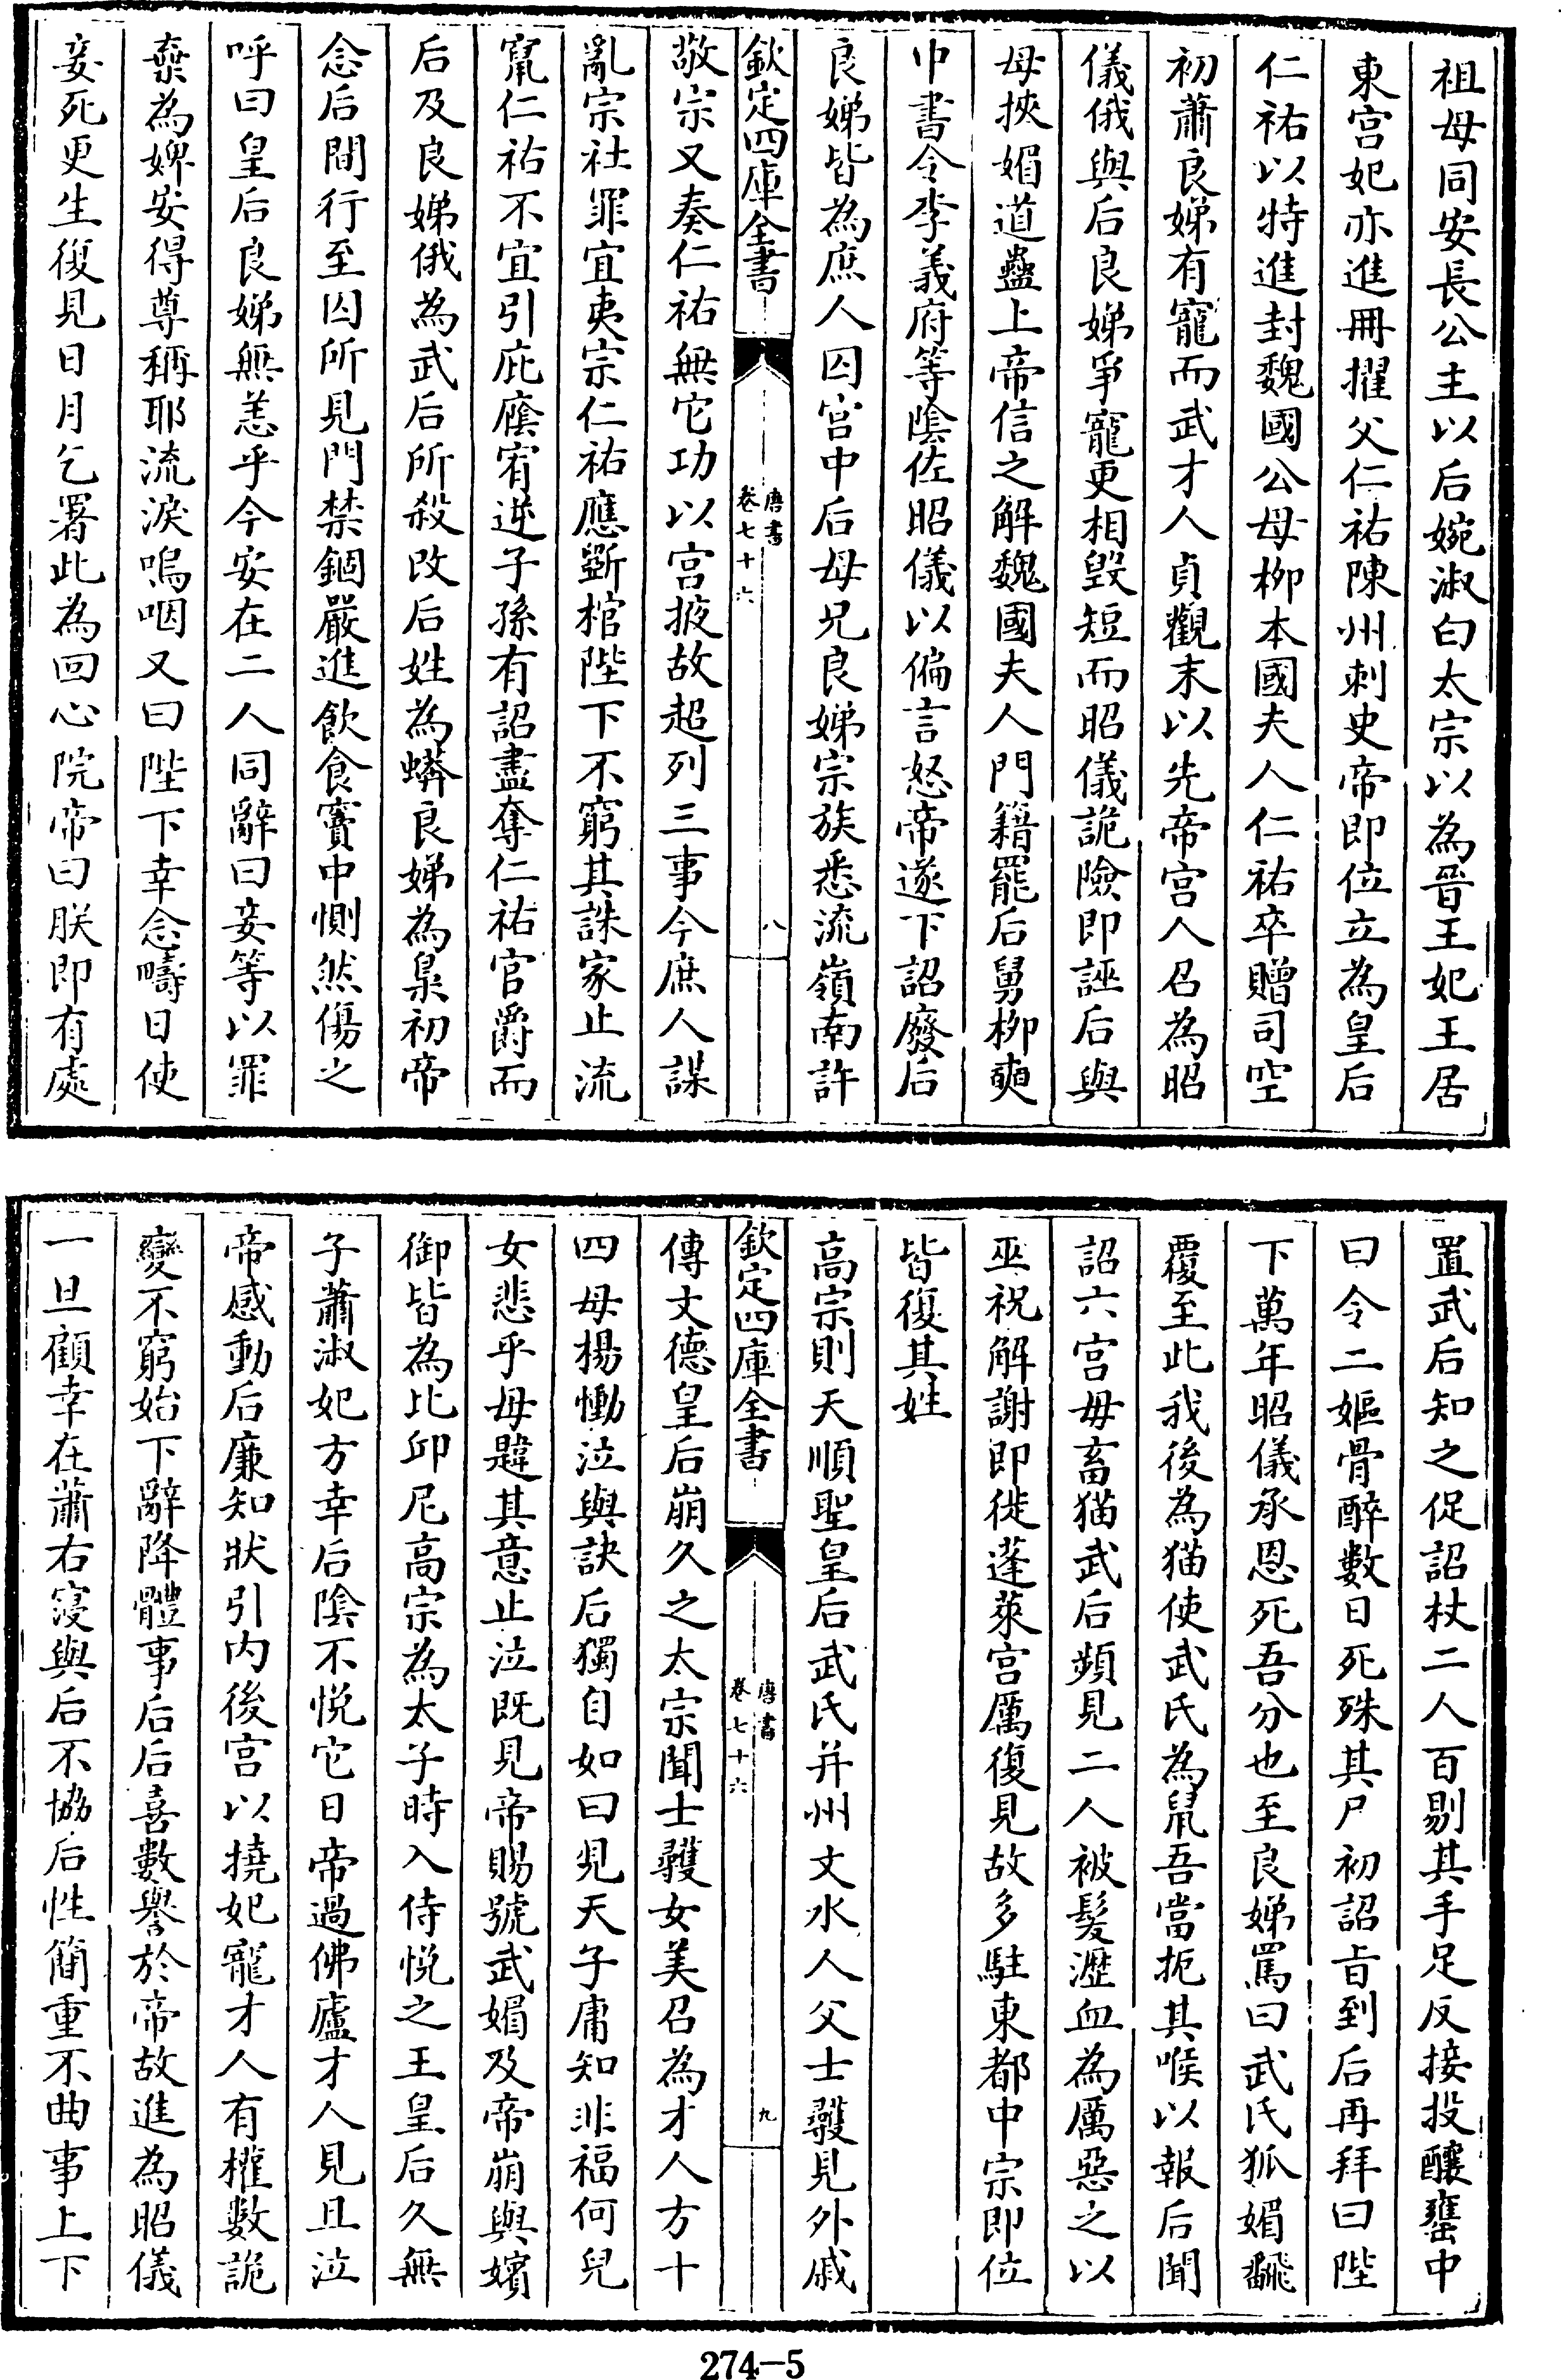 祖母同安長公主以后婉淑白太宗以為晉王妃王居
東宫妃亦進冊擢父仁祐陳州刺史帝即位立為皇后
仁祐以特進封魏國公母栁本國夫人仁祐卒贈司空
初蕭良娣有寵而武才人貞觀末以先帝宫人召為昭
儀俄與后良娣爭寵更相毁短而昭儀詭險即誣后與
母挾媚道蠱上帝信之解魏國夫人門籍罷后舅栁奭
中書令李義府等隂佐昭儀以偏言怒帝遂下詔廢后
良娣皆為庶人囚宫中后母兄良娣宗族悉流嶺南許
欽定四庫全書
唐書
卷七十六
八
敬宗又奏仁祐無它功以宫掖故超列三事今庶人謀
亂宗社罪宜夷宗仁祐應斲棺陛下不窮其誅家止流
竄仁祐不宜引庇廕宥逆子孫有詔盡奪仁祐官爵而
后及良娣俄為武后所殺改后姓為蟒良娣為梟初帝
念后間行至囚所見門禁錮嚴進飲食竇中惻然傷之
呼曰皇后良娣無恙乎今安在二人同辭曰妾等以罪
棄為婢安得尊稱耶流淚嗚咽又曰陛下幸念疇日使
妾死更生復見日月乞署此為回心院帝曰朕即有處
置武后知之促詔杖二人百剔其手足反接投釀甕中
曰令二嫗骨醉數日死殊其尸初詔旨到后再拜曰陛
下萬年昭儀承恩死吾分也至良娣罵曰武氏狐媚飜
覆至此我後為猫使武氏為鼠吾當扼其喉以報后聞
詔六宫毋畜猫武后頻見二人被髮瀝血為厲惡之以
巫祝解謝即徙蓬萊宫厲復見故多駐東都中宗即位
皆復其姓
高宗則天順聖皇后武氏并州文水人父士彠見外戚
欽定四庫全書
唐書
卷七十六
九
傳文德皇后崩久之太宗聞士彠女美召為才人方十
四母楊慟泣與訣后獨自如曰見天子庸知非福何兒
女悲乎母韙其意止泣既見帝賜號武媚及帝崩與嬪
御皆為比邱尼高宗為太子時入侍悦之王皇后久無
子蕭淑妃方幸后隂不悦它日帝過佛廬才人見且泣
帝感動后廉知狀引内後宫以撓妃寵才人有權數詭
變不窮始下辭降體事后后喜數譽於帝故進為昭儀
一旦顧幸在蕭右寖與后不協后性簡重不曲事上下
274-5